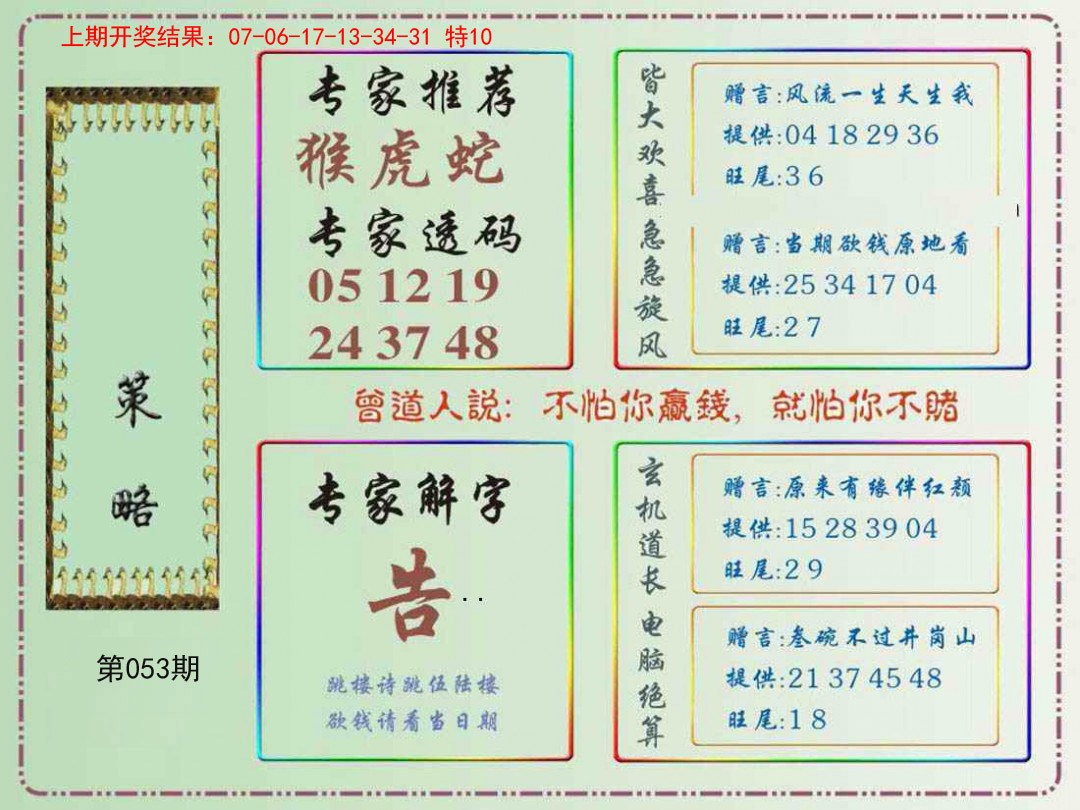 上期开奖结果：07-06-17-13-34-31 特10
策略
第053期
专家推荐
猴虎蛇
专家透码
05 12 19
24 37 48
皆大欢喜
赠言:风流一生天生我
提供:04 18 29 36
旺尾:3 6
急急旋风
赠言:当期欲钱原地看
提供:25 34 17 04
旺尾:2 7
曾道人説：不怕你赢錢，就怕你不賭
专家解字
告
跳楼诗跳伍陆楼
欲钱请看当日期
玄机道长
赠言:原来有缘伴红颜
提供:15 28 39 04
旺尾:2 9
电脑绝算
赠言:叁碗不过井岗山
提供:21 37 45 48
旺尾:1 8